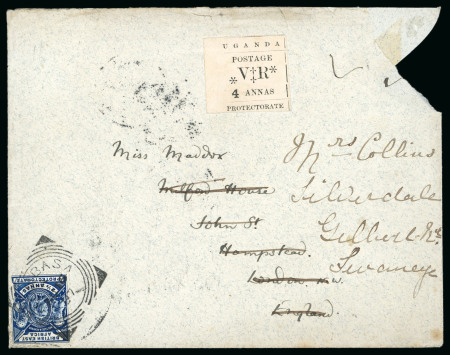 UGANDA
POSTAGE
*V‡R*
4 ANNAS
PROTECTORATE
Miss Maddox
Milford House
John St
Hampstead
London N.W.
England
Mrs Collins
Silverdale
Gilbert
BASA
BRITISH EAST
AFRICA
PROTECTORATE